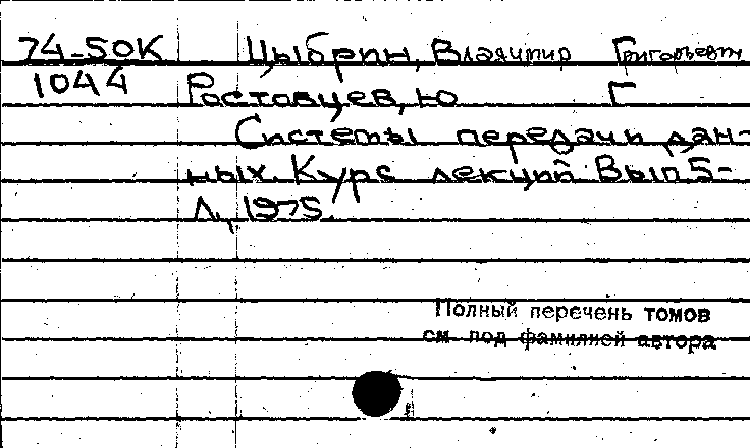 74-50К Цыбрин, Владимир Григорьевич
1044 Ростовцев, Ю Г
Системы передачи дан-
ных. Курс лекций. Вып. 5-
Л., 1975.
Полный перечень томов
см. под фамилией автора